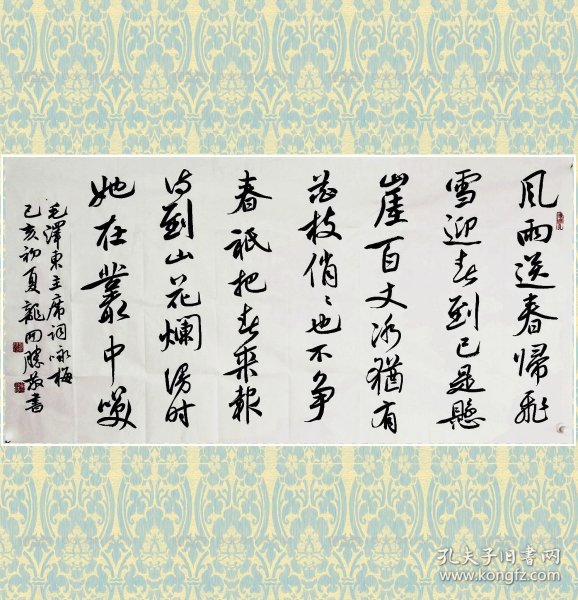 風雨送春歸飛
雪迎春到已是懸
崖百丈冰猶有
花枝俏〻也不争
春祇把春來報
待到山花爛漫时
她在叢中笑
毛澤東主席詞詠梅
己亥初夏龍田勝敬書
孔夫子旧书网
www.kongfz.com